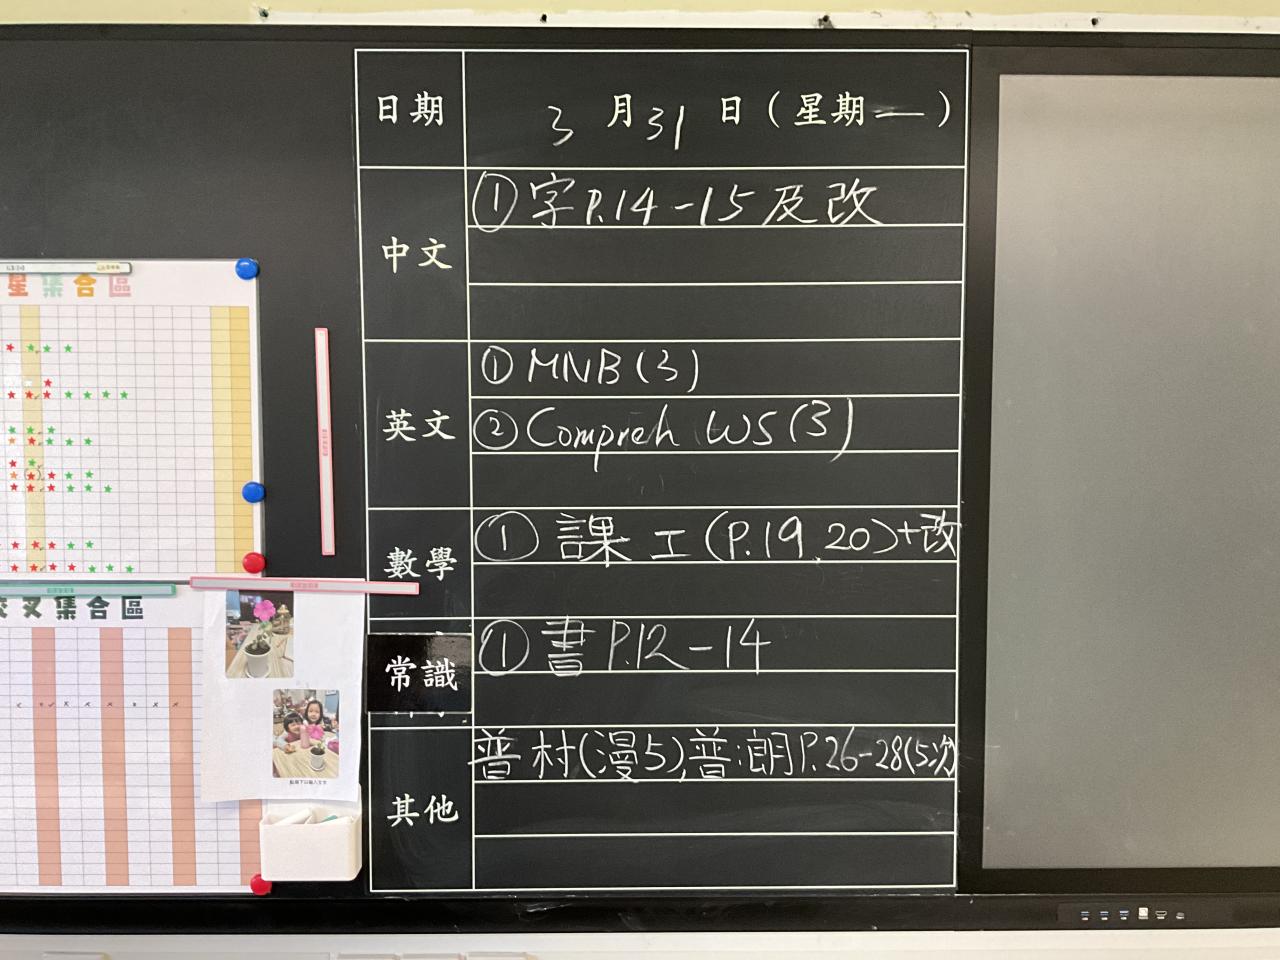 日期 3月31日(星期一)
中文
①字P.14-15及改
英文
①MNB(3)
②Compreh WS(3)
數學
①課工(P.19,20)+改
常識
①書P.12-14
其他
普村(漫5),普朗P.26-28(5次)
星集合區
交叉集合區